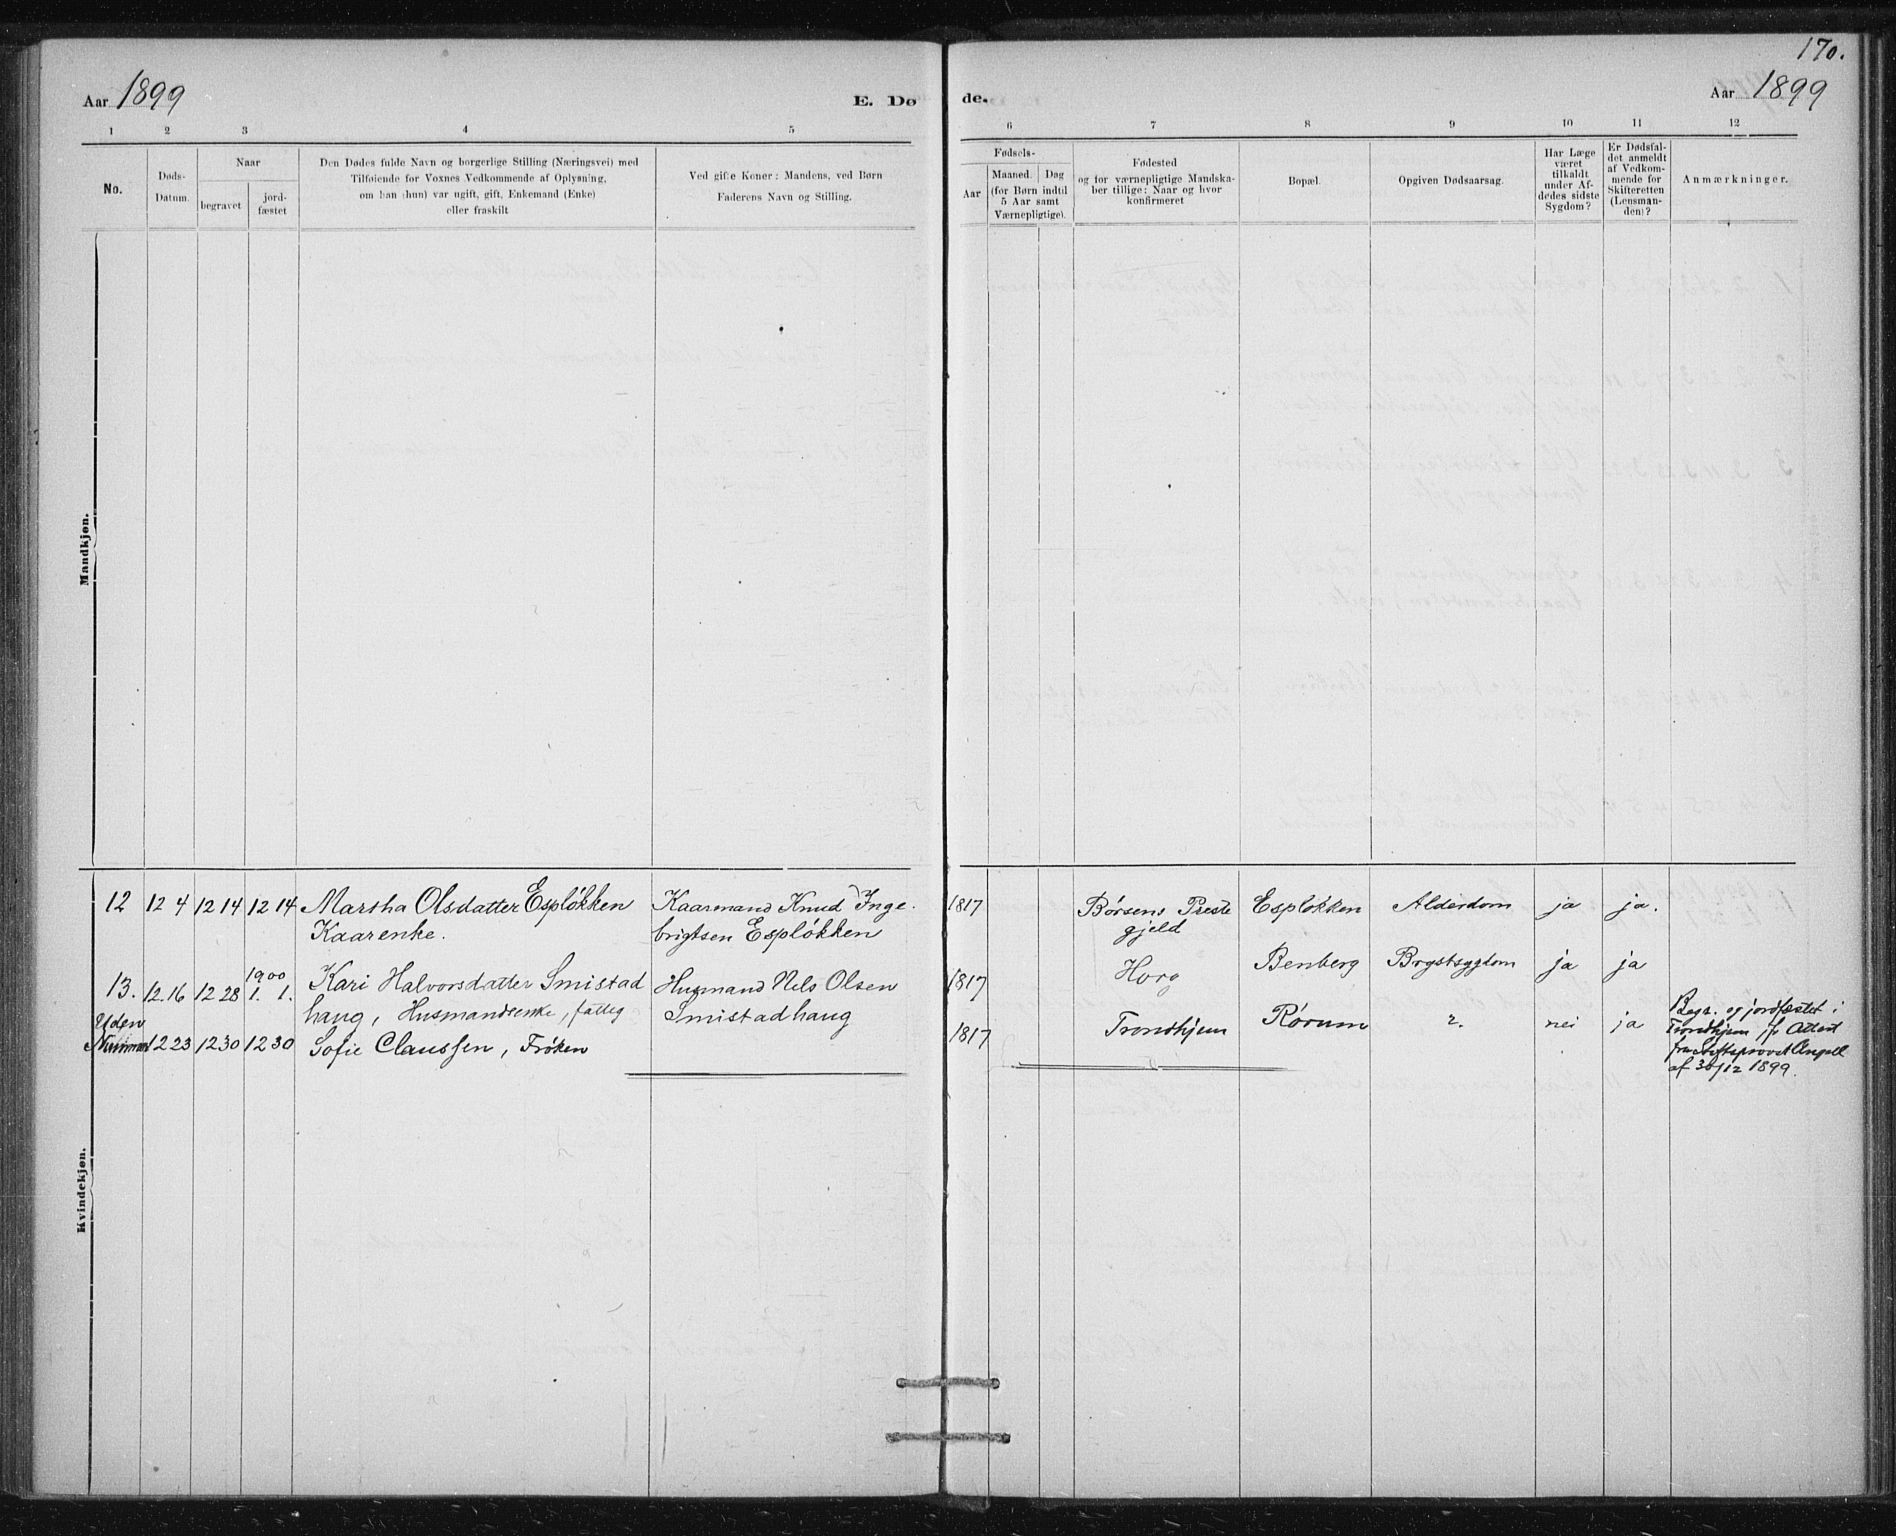 170.
Aar 1899
E. Dø
de.
Aar 1899
1 2 3 4 5
6 7 8 9 10 11 12
No.
Døds-
Datum.
Naar
begravet
jord-
fæstet
Den Dødes fulde Navn og borgerlige Stilling (Næringsvei) med
Tilføiende for Voxnes Vedkommende af Oplysning,
om han (hun) var ugift, gift, Enkemand (Enke)
eller fraskilt
Ved gifte Koner: Mandens, ved Børn
Faderens Navn og Stilling.
Fødsels-
Aar
Maaned. Dag
(for Børn indtil
5 Aar samt
Værnepligtige).
Fødested
og for værnepligtige Mandska-
ber tillige: Naar og hvor
konfirmeret
Bopæl.
Opgiven Dødsaarsag.
Har Læge
været
tilkaldt
under Af-
dødes sidste
Sygdom?
Er Dødsfal-
det anmeldt
af Vedkom-
mende for
Skifteretten
(Lensman-
den)?
Anmærkninger.
Mandkjøn.
Kvindekjøn.
12 12 4 12 14 12 14 Martha Olsdatter Espløkken Kaarmand Knud Inge- 1817 Børsens Preste Espløkken Alderdom ja ja.
Kaarenke. brigtsen Espløkken gjeld
1900
13. 12.16 12 28 1. 1. Kari Halvorsdatter Smistad Husmand Nils Olsen 1817 Horg Benberg Brystsygdom ja ja
haug, Husmandsenke, fattig Smistadhaug
Uden
Nummer 12 23 12 30 12 30 Sofie Claussen, Frøken 1817 Trondhjem Rørum ?. nei ja
Begr. og jordfæstet i
Trondhjem jfr Attest
fra Stiftsprovst Angell
af 30/12 1899.